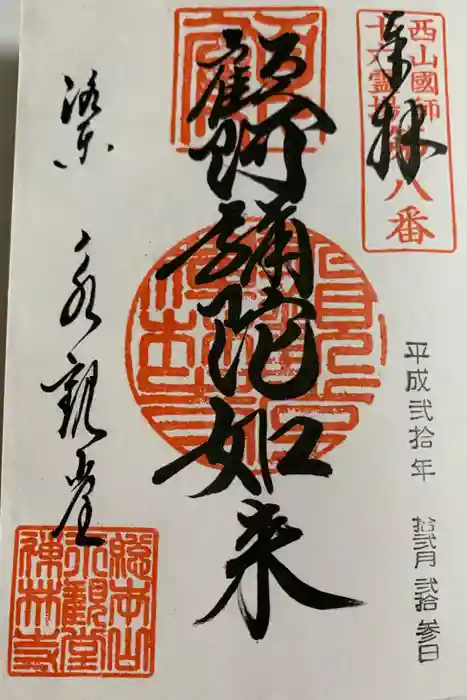 奉拝
西山國師
十六霊場第八番
平成弐拾年
拾弐月弐拾参日
顧阿彌陀如来
洛東
永観堂
總本山
永觀堂
禪林寺